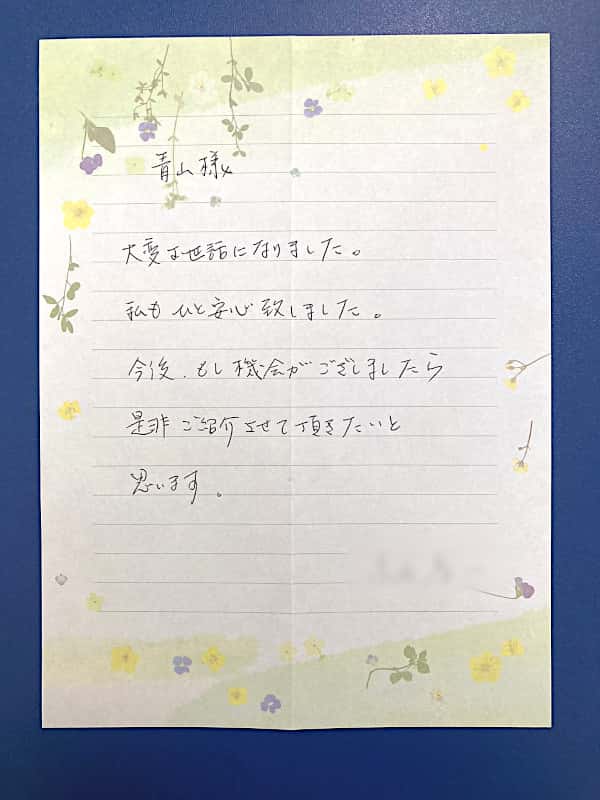 青山様
大変お世話になりました。
私もひと安心致しました。
今後、もし機会がございましたら
是非ご紹介させて頂きたいと
思います。